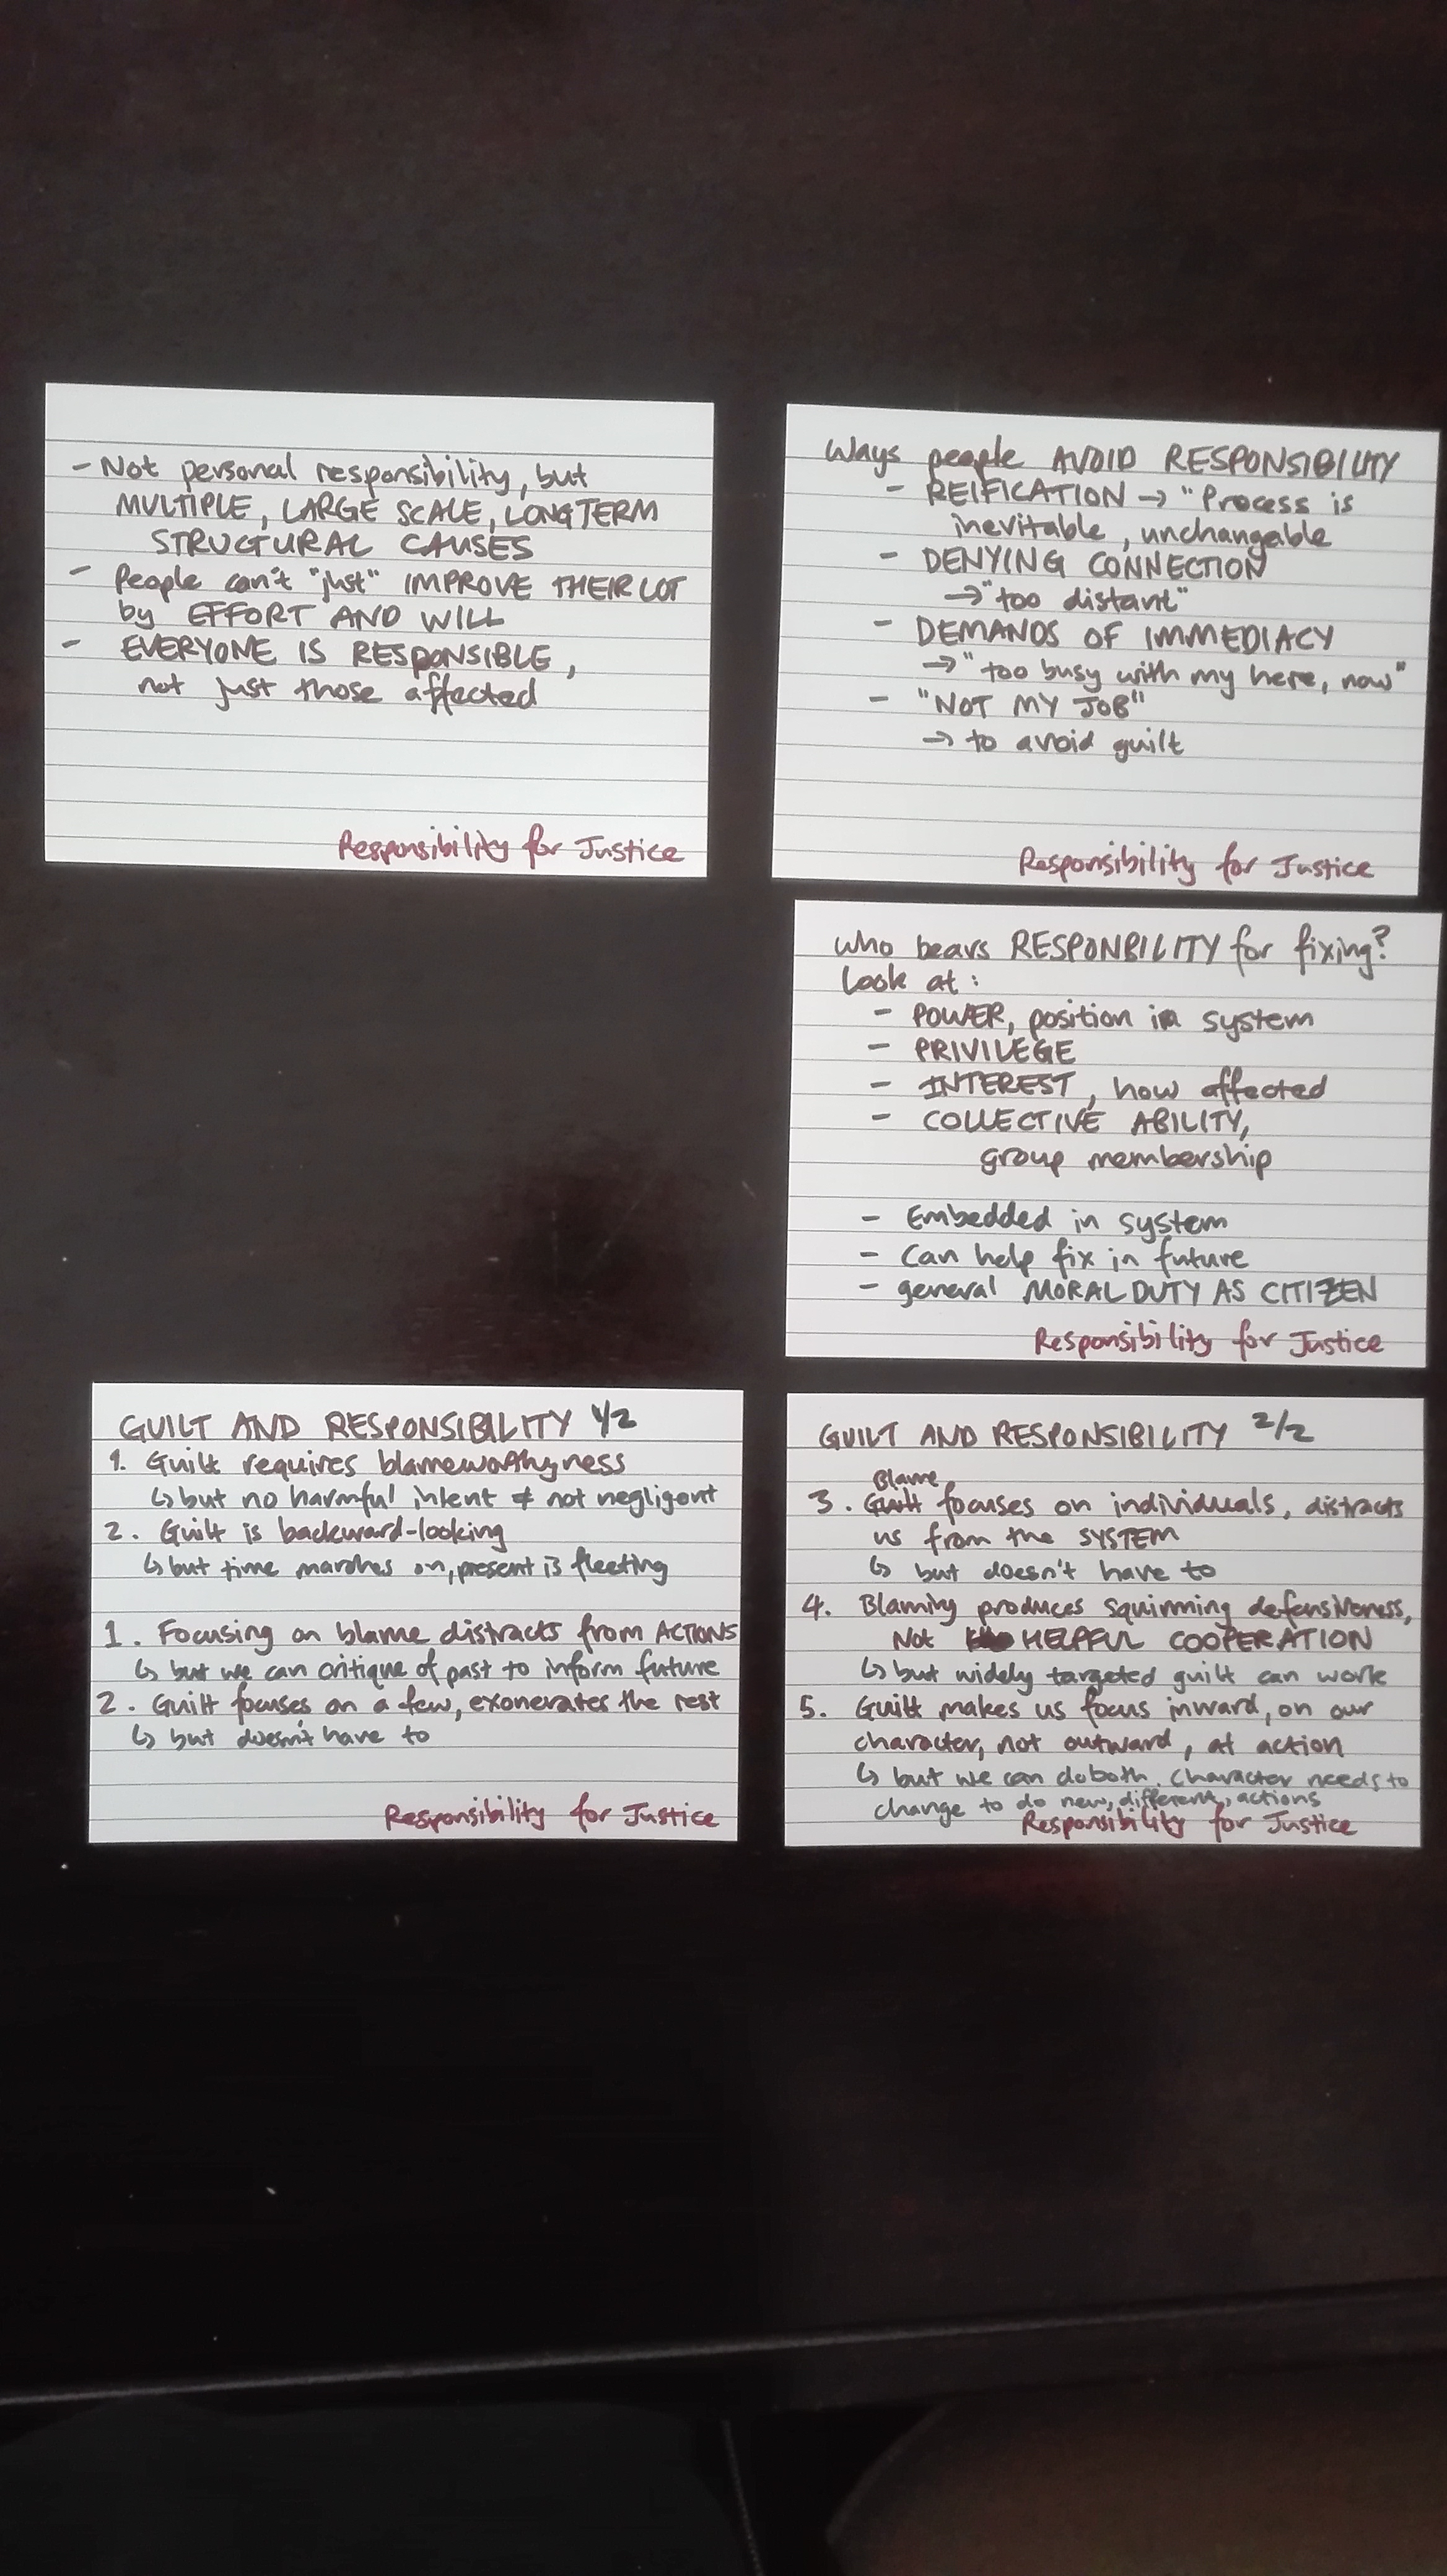 - Not personal responsibility, but
MULTIPLE, LARGE SCALE, LONG TERM
STRUCTURAL CAUSES
- People can't "just" IMPROVE THEIR LOT
by EFFORT AND WILL
- EVERYONE IS RESPONSIBLE,
not just those affected
Responsibility for Justice
Ways people AVOID RESPONSIBILITY
- REIFICATION → "Process is
inevitable, unchangable
- DENYING CONNECTION
→ "too distant"
- DEMANDS OF IMMEDIACY
→ "too busy with my here, now"
- "NOT MY JOB"
→ to avoid guilt
Responsibility for Justice
Who bears RESPONBILITY for fixing?
Look at:
- POWER, position in system
- PRIVILEGE
- INTEREST, how affected
- COLLECTIVE ABILITY,
group membership
- Embedded in system
- Can help fix in future
- general MORAL DUTY AS CITIZEN
Responsibility for Justice
GUILT AND RESPONSIBILITY 1/2
1. Guilt requires blameworthyness
↳ but no harmful intent ≠ not negligent
2. Guilt is backward-looking
↳ but time marches on, present is fleeting
1. Focusing on blame distracts from ACTIONS
↳ but we can critique of past to inform future
2. Guilt focuses on a few, exonerates the rest
↳ but doesn't have to
Responsibility for Justice
GUILT AND RESPONSIBILITY 2/2
Blame
3. Guilt focuses on individuals, distracts
us from the SYSTEM
↳ but doesn't have to
4. Blaming produces squirming defensiveness,
Not HELPFUL COOPERATION
↳ but widely targeted guilt can work
5. Guilt makes us focus inward, on our
character, not outward, at action
↳ but we can do both. Character needs to
change to do new, different, actions
Responsibility for Justice